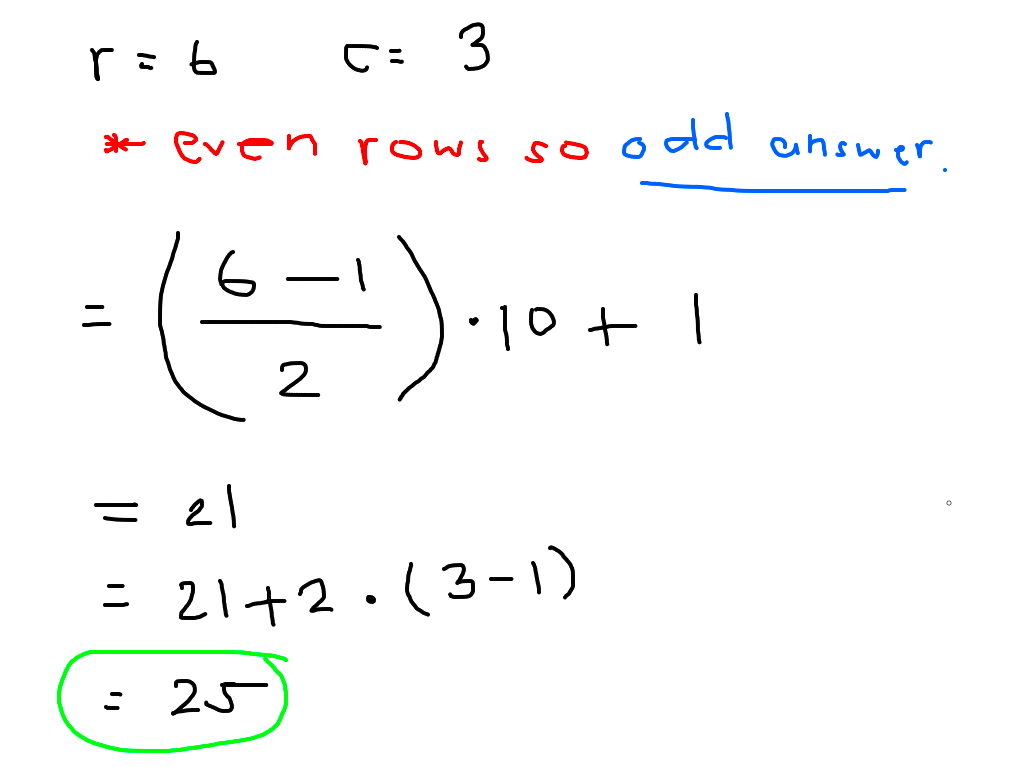 r = 6 c = 3
* even rows so odd answer.
= (6 - 1 / 2) · 10 + 1
= 21
= 21 + 2 · (3 - 1)
= 25